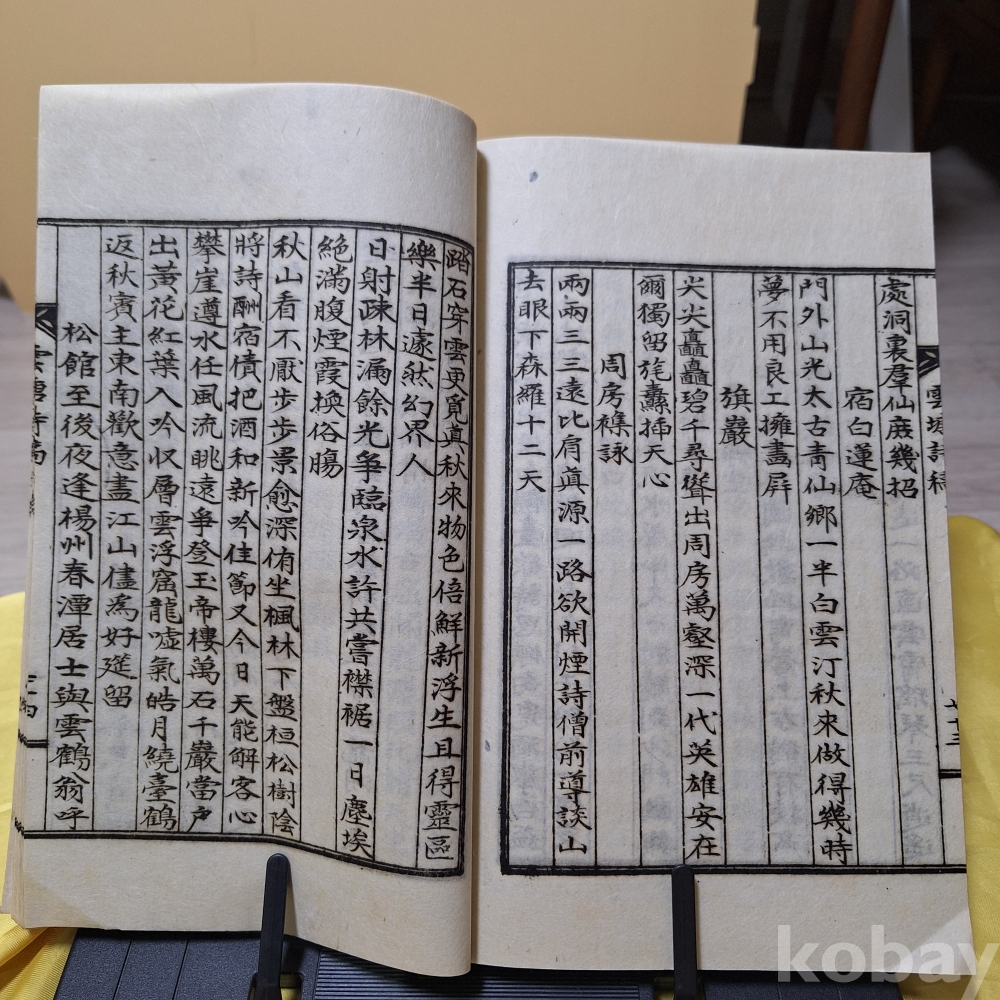 雲塘詩稿
處洞裏羣仙庶幾招
宿白蓮庵
門外山光太古靑仙鄉一半白雲汀秋來做得幾時
夢不用良工擁畵屛
旗巖
尖尖矗矗碧千尋聳出周房萬壑深一代英雄安在
爾獨留旄纛揷天心
周房襍詠
兩兩三三遠比肩眞源一路欲開煙詩僧前導談山
去眼下森羅十二天
踏石穿雲更覓眞秋來物色倍鮮新浮生且得靈區
樂半日遽然幻界人
日射疎林漏餘光爭臨泉水許共嘗襟裾一日塵埃
絶滿腹煙霞換俗腸
秋山看不厭步步景愈深侑坐楓林下盤桓松樹陰
將詩酬宿債把酒和新吟佳節又今日天能解客心
攀崖遵水任風流眺遠爭登玉帝樓萬石千巖當戶
出黃花紅葉入吟収層雲浮窟龍噓氣皓月繞臺鶴
返秋賓主東南歡意盡江山儘爲好筵留
松館至後夜逢楊州春潭居士與雲鶴翁呼
雲塘詩稿
kobay